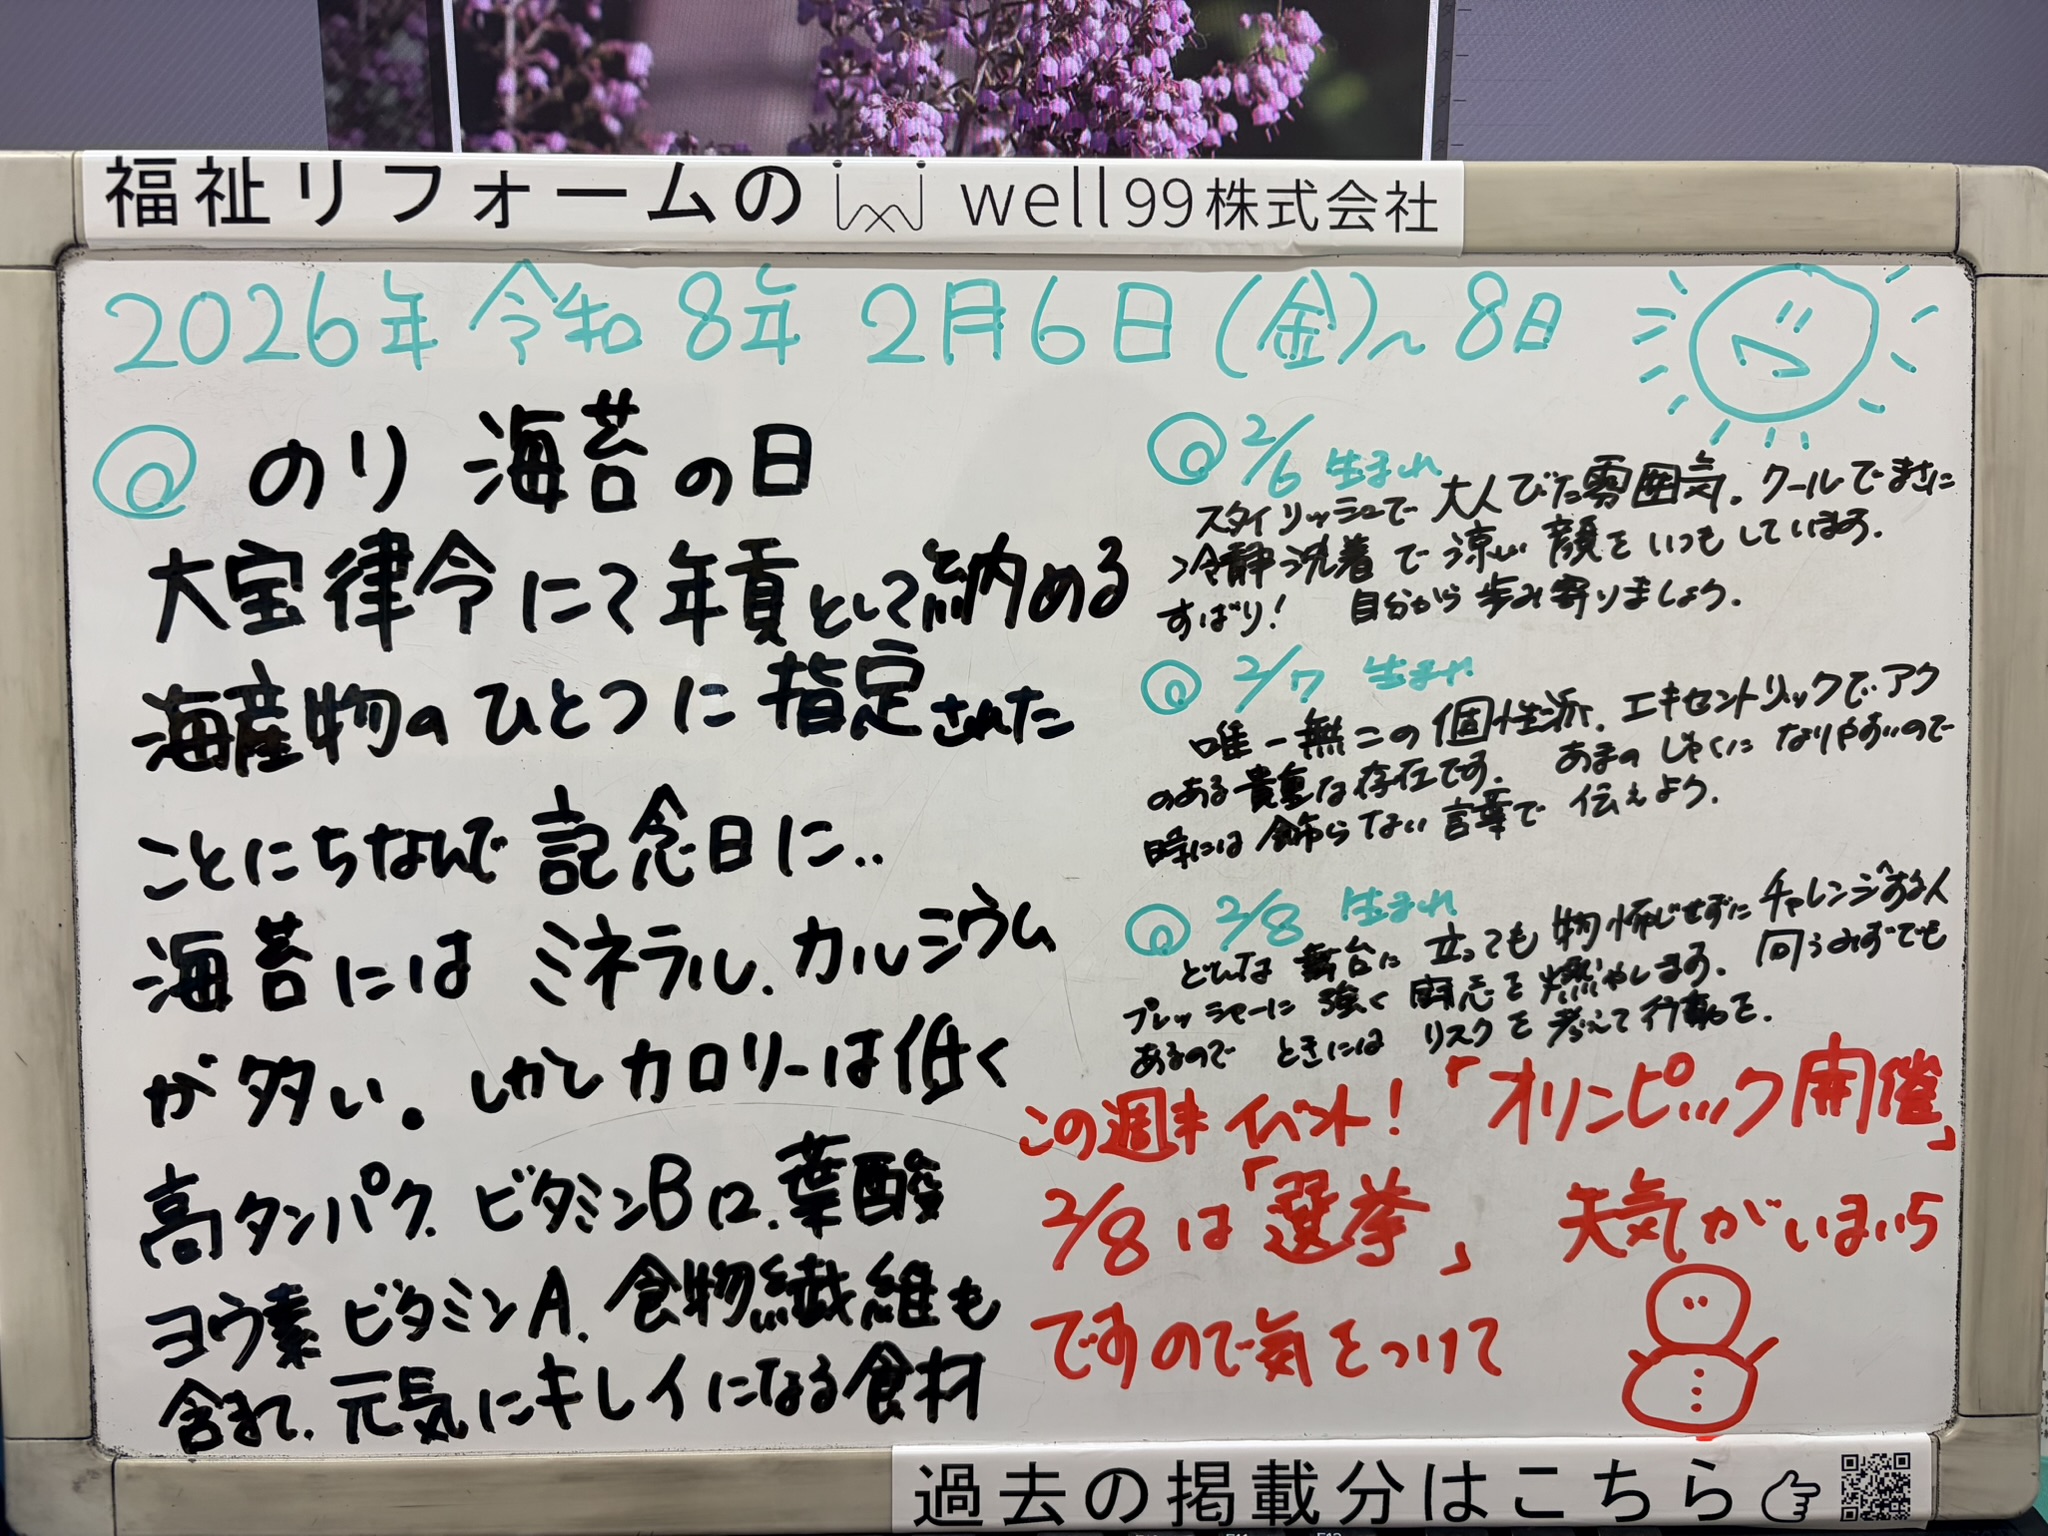 福祉リフォームの well99株式会社
2026年 令和8年 2月6日(金)~8日
のり 海苔の日
大宝律令にて年貢として納める
海産物のひとつに指定された
ことにちなんで記念日に..
海苔にはミネラル、カルシウム
が多い。しかしカロリーは低く
高タンパク、ビタミンB12、葉酸
ヨウ素 ビタミンA、食物繊維も
含まれて、元気にキレイになる食材
2/6 生まれ
スタイリッシュで大人びた雰囲気。クールでまさに
冷静沈着で涼しい顔をいつもしています。
すばり! 自分から歩み寄りましょう。
2/7 生まれ
唯一無二の個性派、エキセントリックでアク
のある貴重な存在です。 あまのじゃくになりやすいので
時には飾らない言葉で伝えよう。
2/8 生まれ
どんな舞台に立っても物怖じせずにチャレンジする人
プレッシャーに強く闘志を燃やします。 向うみずでも
あるので ときには リスクを考えて行動を。
この週末イベント!「オリンピック開催」
2/8は「選挙」 天気がいまいち
ですので気をつけて
過去の掲載分はこちら